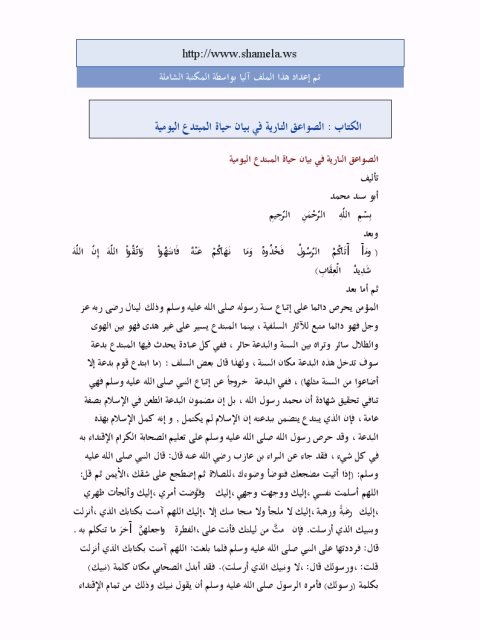 http://www.shamela.ws
تم إعداد هذا الملف آليا بواسطة المكتبة الشاملة
الكتاب : الصواعق النارية في بيان حياة المبتدع اليومية
الصواعق النارية في بيان حياة المبتدع اليومية
تأليف
أبو سند محمد
بِسْمِ اللَّهِ الرَّحْمَنِ الرَّحِيمِ
وبعد
( وَمَا آَتَاكُمُ الرَّسُولُ فَخُذُوهُ وَمَا نَهَاكُمْ عَنْهُ فَانْتَهُوا وَاتَّقُوا اللَّهَ إِنَّ اللَّهَ
شَدِيدُ الْعِقَابِ)
ثم أما بعد
المؤمن يحرص دائما على إتباع سنة رسوله صلى الله عليه وسلم وذلك لينال رضى ربه عز
وجل فهو دائما متبع للآثار السلفية ، بينما المبتدع يسير على غير هدى فهو بين الهوى
والظلال سائر وتراه بين السنة والبدعة حائر ، ففي كل عبادة يحدث فيها المبتدع بدعة
سوف تدخل هذه البدعة مكان السنة ، ولهذا قال بعض السلف : (ما ابتدع قوم بدعة إلا
أضاعوا من السنة مثلها) ، ففي البدعة خروجاً عن إتباع النبي صلى الله عليه وسلم فهي
تنافي تحقيق شهادة أن محمد رسول الله ، بل إن مضمون البدعة الطعن في الإسلام بصفة
عامة ، فإن الذي يبتدع يتضمن ببدعته إن الإسلام لم يكتمل , و إنه كمل الإسلام بهذه
البدعة ، وقد حرص رسول الله صلى الله عليه وسلم على تعليم الصحابة الكرام الإقتداء به
في كل شيء ، فقد جاء عن البراء بن عازب رضي الله عنه قال: قال النبي صلى الله عليه
وسلم: (إذا أتيت مضجعك فتوضأ وضوءك ،للصلاة ثم إضطجع على شقك ،الأيمن ثم قل:
اللهم أسلمت نفسي ،إليك ووجهت وجهي ،إليك وفوَّضت أمري ،إليك وألجأت ظهري
،إليك رغبةً ورهبة ،إليك لا ملجأ ولا منجا منك إلا ،إليك اللهم آمنت بكتابك الذي ،أنزلت
وبنبيك الذي أرسلت. فإن متَّ من ليلتك فأنت على ،الفطرة واجعلهنَّ آخرَ ما تتكلم به .
قال: فرددتها على النبي صلى الله عليه وسلم فلما بلغت: اللهم آمنت بكتابك الذي أنزلت
قلت: ،ورسولك قال: ،لا ونبيك الذي أرسلت). فقد أبدل الصحابي مكان كلمة (نبيك)
بكلمة (رسولك) فأمره الرسول صلى الله عليه وسلم أن يقول نبيك وذلك من تمام الإقتداء